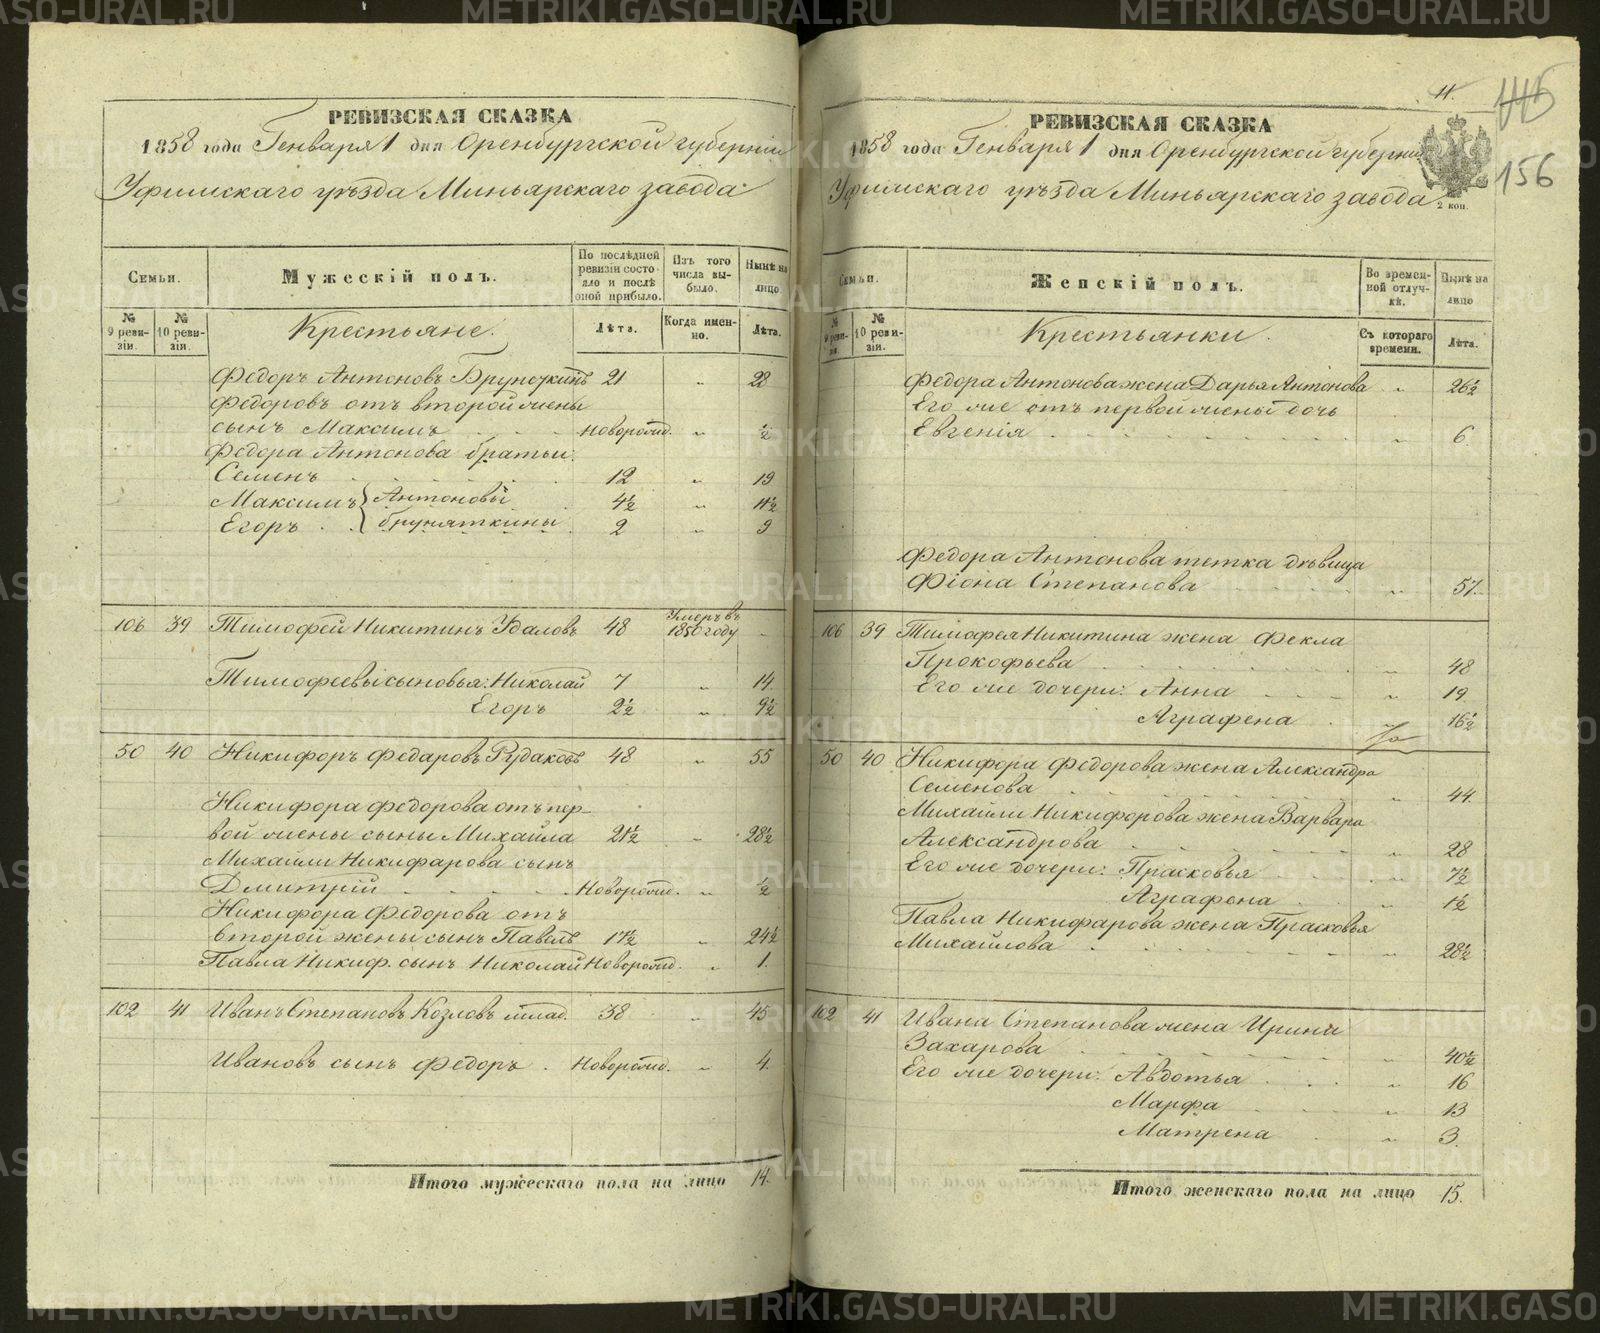 РЕВИЗСКАЯ СКАЗКА
1858 года Генваря 1 дня Оренбургской губерніи
Уфимскаго уѣзда Миньярскаго завода
Семьи. Мужескій полъ. По послѣдней ревизіи состояло и послѣ оной прибыло. Изъ того числа выбыло. Нынѣ на лицо.
№ 9 ревизіи. № 10 ревизіи. Крестьяне. Лѣта. Когда именно. Лѣта.
Федоръ Антоновъ 21 „ 28
Федоровъ отъ второй жены
сынъ Максимъ Новорожд. „ ½
Федора Антонова братьи:
Семенъ 12 „ 19
Максимъ Антоновы 4½ „ 11½
Егоръ Бруняткины 2 „ 9
106 39 Тимофей Никитинъ Удаловъ 48 Умеръ въ 1850 году „
Тимофеевы сыновья: Николай 7 „ 14
Егоръ 2½ „ 9½
50 40 Никифоръ Федаровъ Рудаковъ 48 „ 55
Никифора Федорова отъ пер-
вой жены сыны Михайла 21½ „ 28½
Михайлы Никифарова сынъ
Дмитрій Новорожд. „ ½
Никифора Федорова отъ
второй жены сынъ Павелъ 17½ „ 24½
Павла Никиф. сынъ Николай Новорожд. „ 1.
102 41 Иванъ Степановъ Козловъ млад. 38 „ 45
Ивановъ сынъ Федоръ Новорожд. „ 4
Итого мужескаго пола на лицо 14.
11.
156
РЕВИЗСКАЯ СКАЗКА
1858 года Генваря 1 дня Оренбургской губерніи
Уфимскаго уѣзда Миньярскаго завода
2 коп.
Семьи. Женскій полъ. Во временной отлучкѣ. Нынѣ на лицо
№ 9 ревизіи. № 10 ревизіи. Крестьянки. Съ котораго времени. Лѣта.
Федора Антонова жена Дарья Антонова „ 26½
Его же отъ первой жены дочь
Евгенія „ 6.
Федора Антонова тетка дѣвица
Фіона Степанова „ 57.
106 39 Тимофея Никитина жена Фекла
Прокофьева „ 48
Его же дочери: Анна „ 19
Аграфена „ 16½
50 40 Никифора Федорова жена Александра
Семенова „ 44
Михайлы Никифорова жена Варвара
Александрова „ 28
Его же дочери: Прасковья „ 7½
Аграфена „ 1½
Павла Никифарова жена Прасковья
Михайлова „ 28½
102 41 Ивана Степанова жена Ирина
Захарова „ 40½
Его же дочери: Авдотья „ 16
Марфа „ 13
Матрена „ 3.
Итого женскаго пола на лицо 15.
METRIKI.GASO-URAL.RU